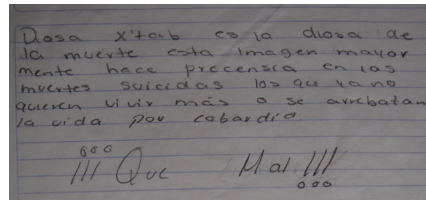 Diosa X'tab es la diosa de
la muerte esta imagen mayor
mente hace precensia en las
muertes suicidas los que ya no
quieren vivir más o se arrebatan
la vida por cobardia
¡¡¡ Que Mal !!!